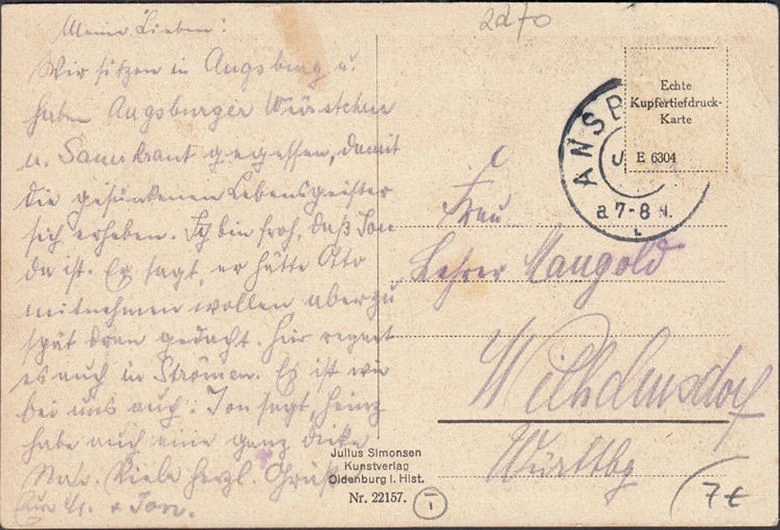 2270
Meine Lieben!
Wir sitzen in Augsburg u.
haben Augsburger Würstchen
u. Sauerkraut gegessen, damit
die gesunkenen Lebensgeister
sich erheben. Ich bin froh, daß Ton
da ist. Er sagt, er hätte Otto
mitnehmen wollen aber zu
spät dran gedacht. Hier regnet
es auch in Strömen. Es ist wie
bei uns auch. Ton sagt, Heinz
habe auch eine ganz dicke
Viele herzl. Grüße
+ Ton.
Echte
Kupfertiefdruck-
Karte
E 6304
ANSP
a 7-8 N.
Frau
Lehrer Mangold
Wilhelmsdorf
Württbg
Julius Simonsen
Kunstverlag
Oldenburg i. Hlst.
Nr. 22157.
1
7€